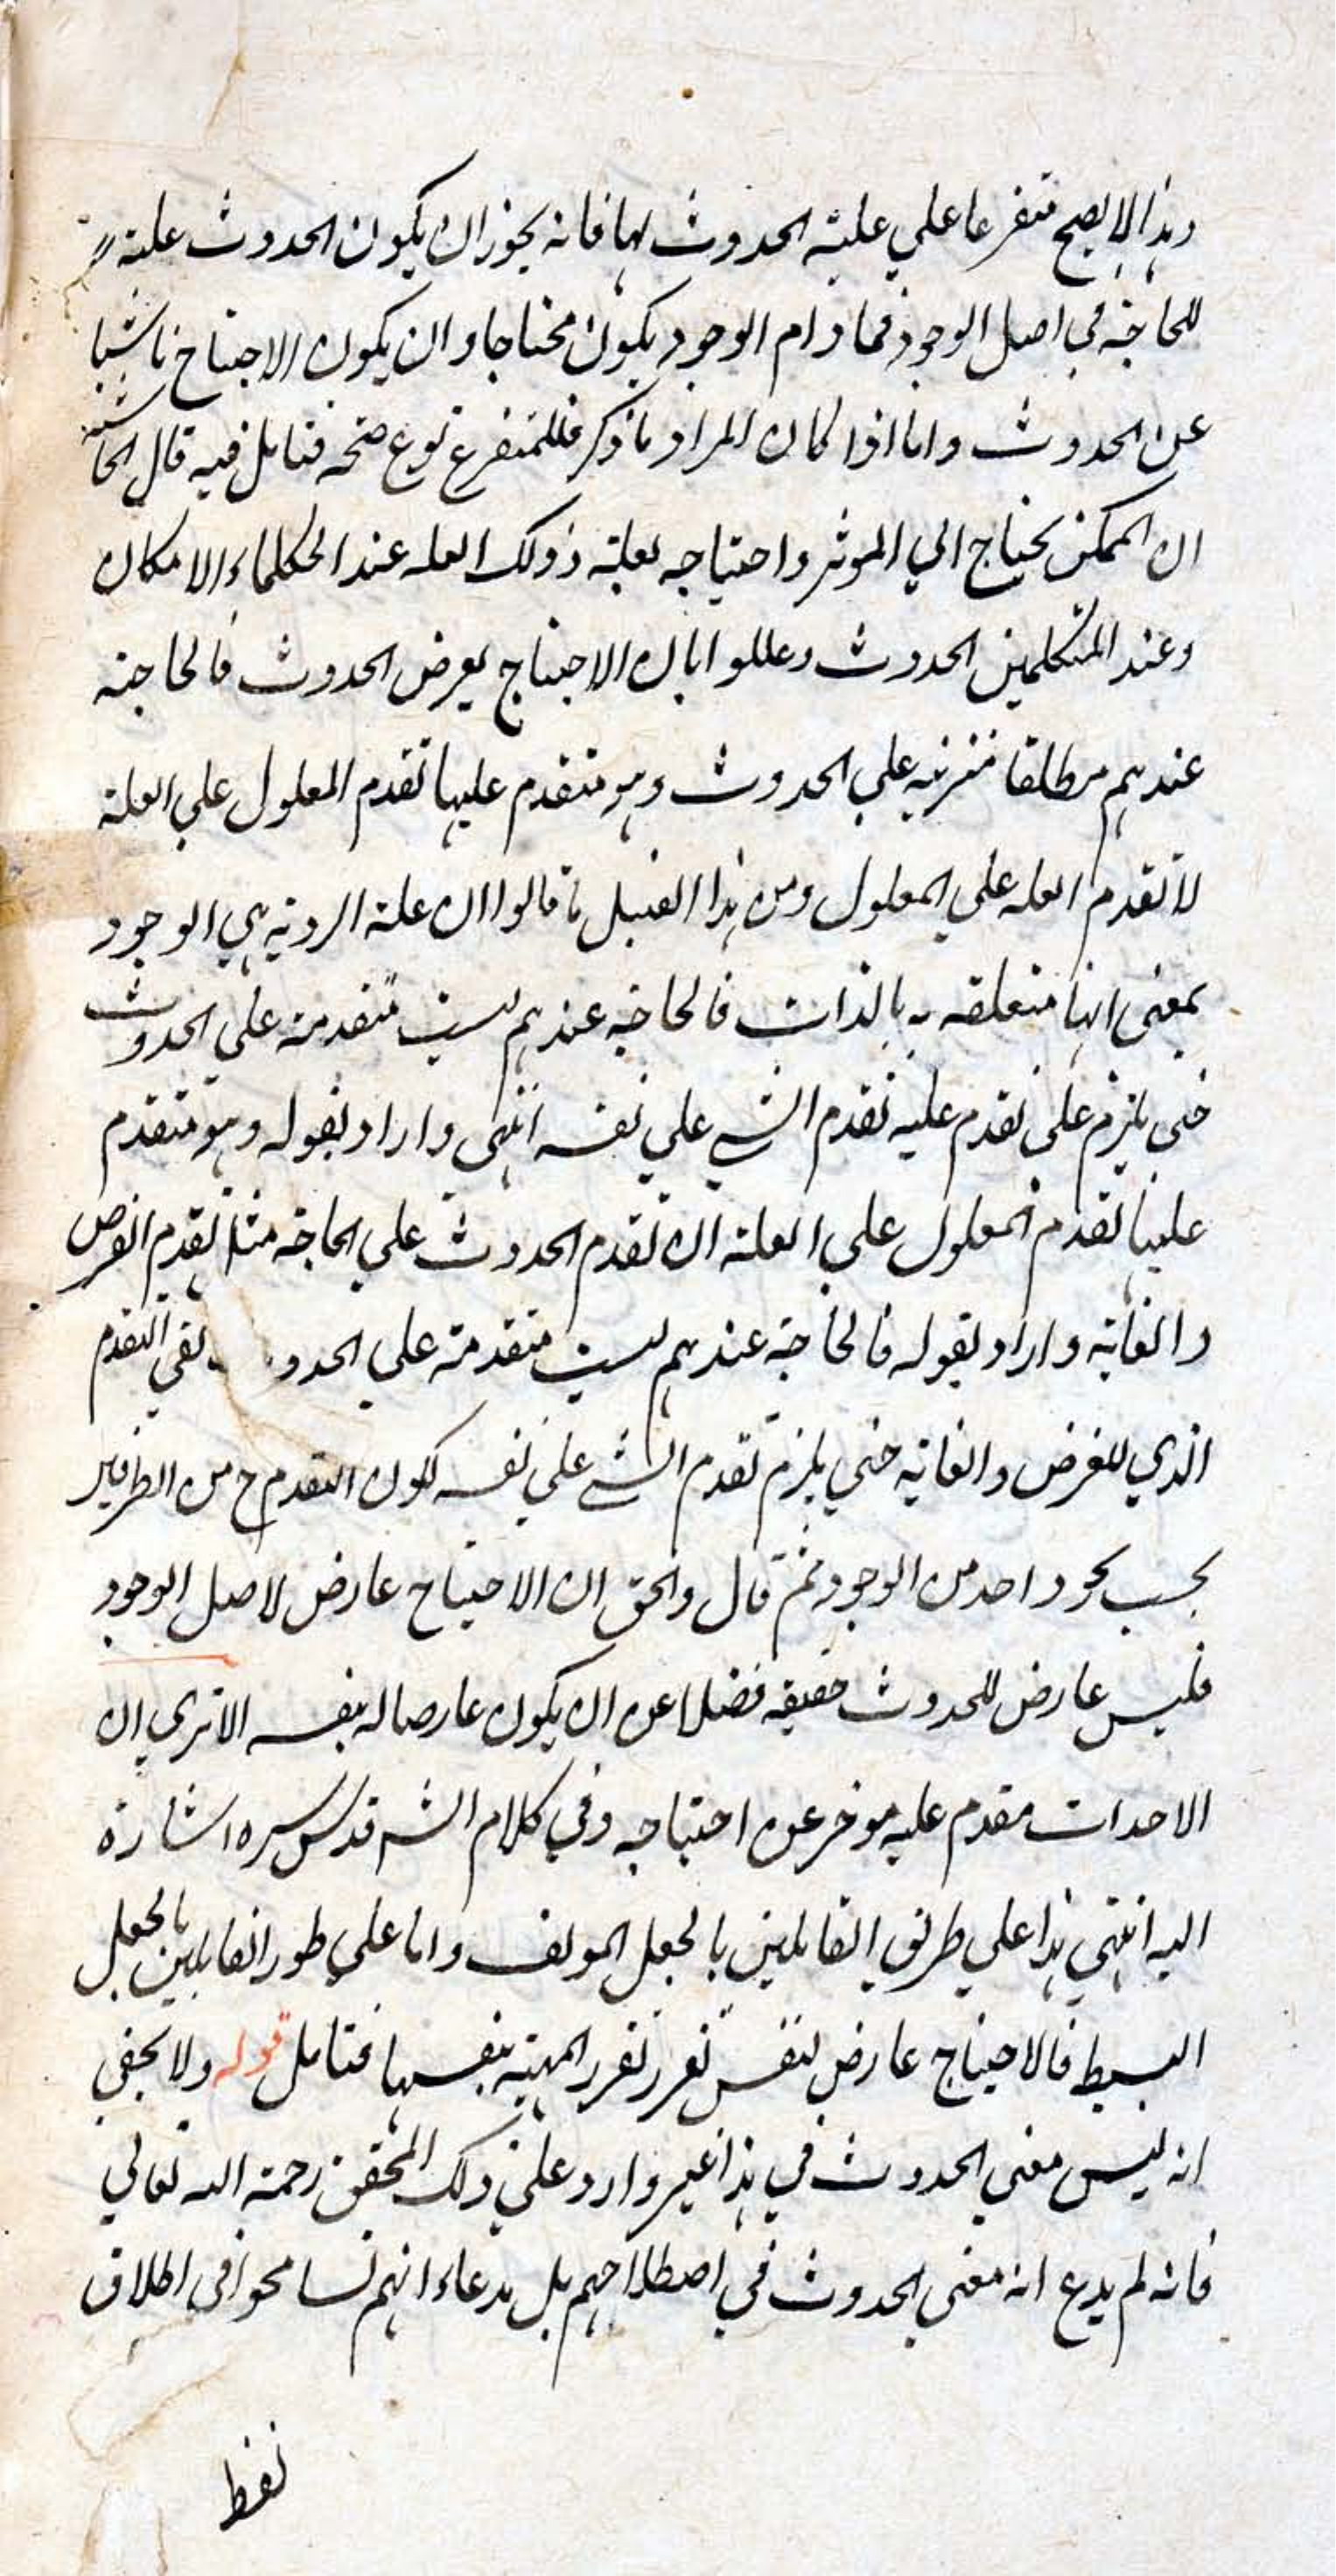 وهذا لا يصح متفرعا على علية الحدوث لها فانه يجوز ان يكون الحدوث علية
للحاجة في اصل الوجود فما دام الوجود يكون محتاجا وان يكون الاحتياج ناشيا
عن الحدوث واما اذا كان المراد ما ذكر فللمتفرع نوع صحة فتامل فيه قال المحاشية
ان الممكن يحتاج الي الموثر واحتياجه لعلية وذلك العله عند الحكلماء الامكان
وعند المتكلمين الحدوث وعللوا بان الاحتياج بعرض الحدوث فالحاجة
عندهم مطلقا مترتبه علي الحدوث وهو متقدم عليها تقدم المعلول علي العلة
لا تقدم العله علي المعلول ومن هذا القبيل ما قالوا ان علة الروية هي الوجود
بمعنى انها متعلقه به بالذات فالحاجه عندهم ليست متقدمة علي الحدوث
حتى يلزم على تقدم عليه تقدم الشي علي نفسه انتهى واراد بقوله وهو متقدم
عليها تقدم المعلول علي العلة ان تقدم الحدوث علي الحاجه مثل تقدم الغرض
والغاية واراد بقوله فالحاجة عندهم ليست متقدمة علي الحدو نفي التقدم
الذي للغرض والغاية حتي يلزم تقدم الشي علي نفسه لكون التقدم ح من الطرفين
بحسب نحو واحد من الوجود ثم قال والحق ان الاحتياج عارض لاصل الوجود
فليس عارض للحدوث حقيقه فضلا عن ان يكون عارضا له بنفسه الا تري ان
الاحداث مقدم عليه موخر عن احتياجه وفي كلام الشـ قدس سره اشارة
اليه انتهي هذا علي طريق القايلين بالجعل المولف واما علي طور القايلين بالجعل
البسيط فالاحتياج عارض لنفس تقرر تقرر المهية بنفسها فتامل قوله ولا يخفي
انه ليس معنى الحدوث في هذا غير وارد على ذلك المحقق رحمة الله تعالي
فانه لم يدع انه معنى الحدوث في اصطلاحهم بل يدعاء انهم تسامحوا في اطلاق
لفظ